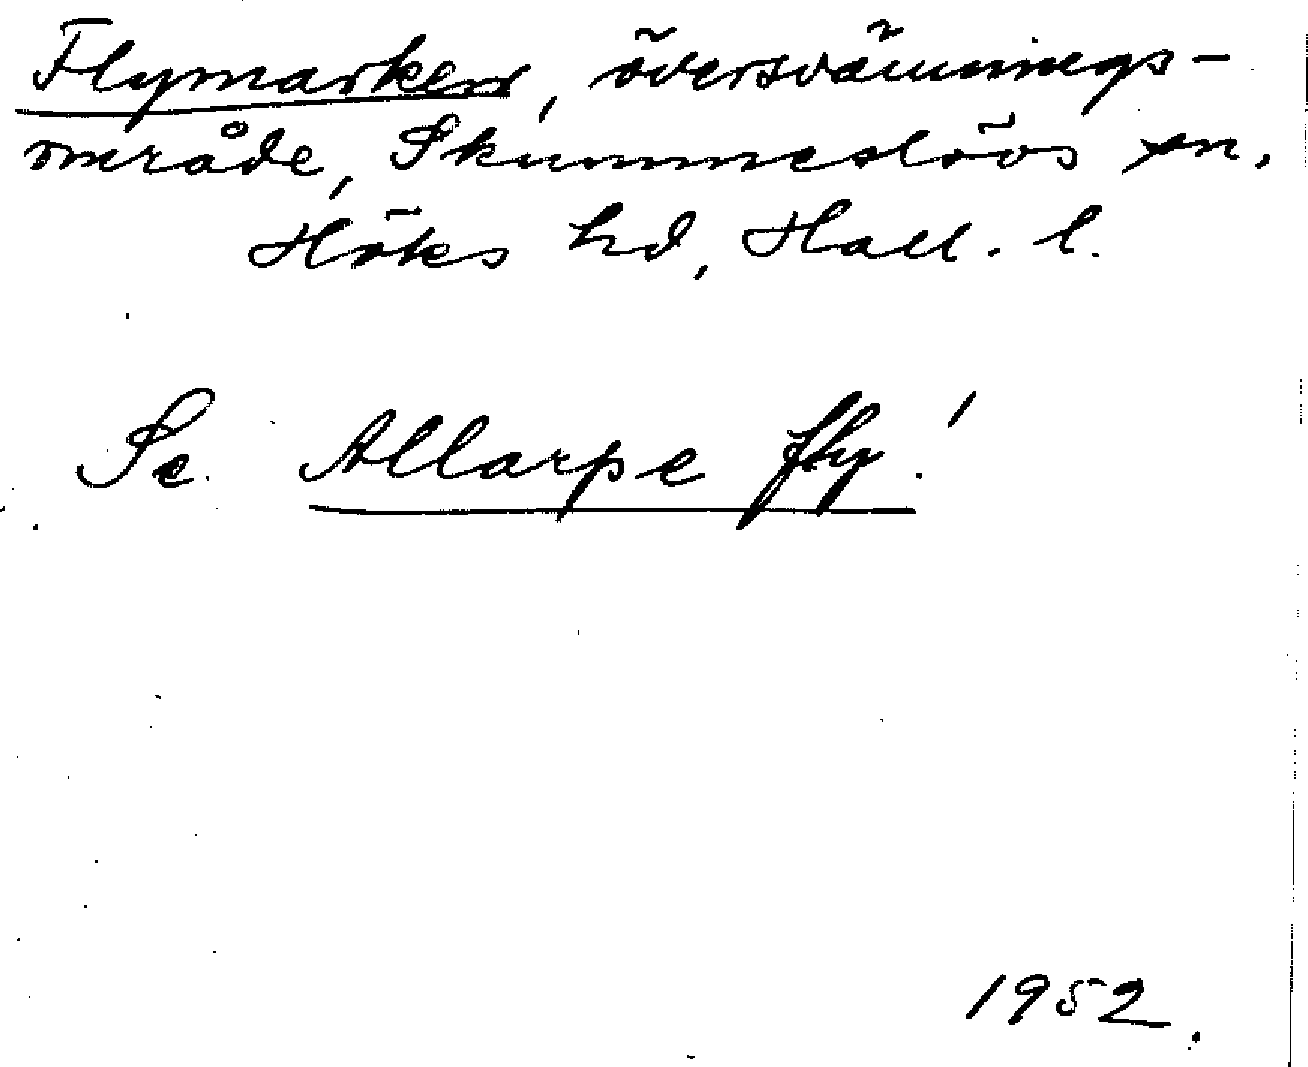 Flymarken, översvämnings-
område, Skummeslövs sn.
Höks hd, Hall. l.
Se Allarps fly!
1952.